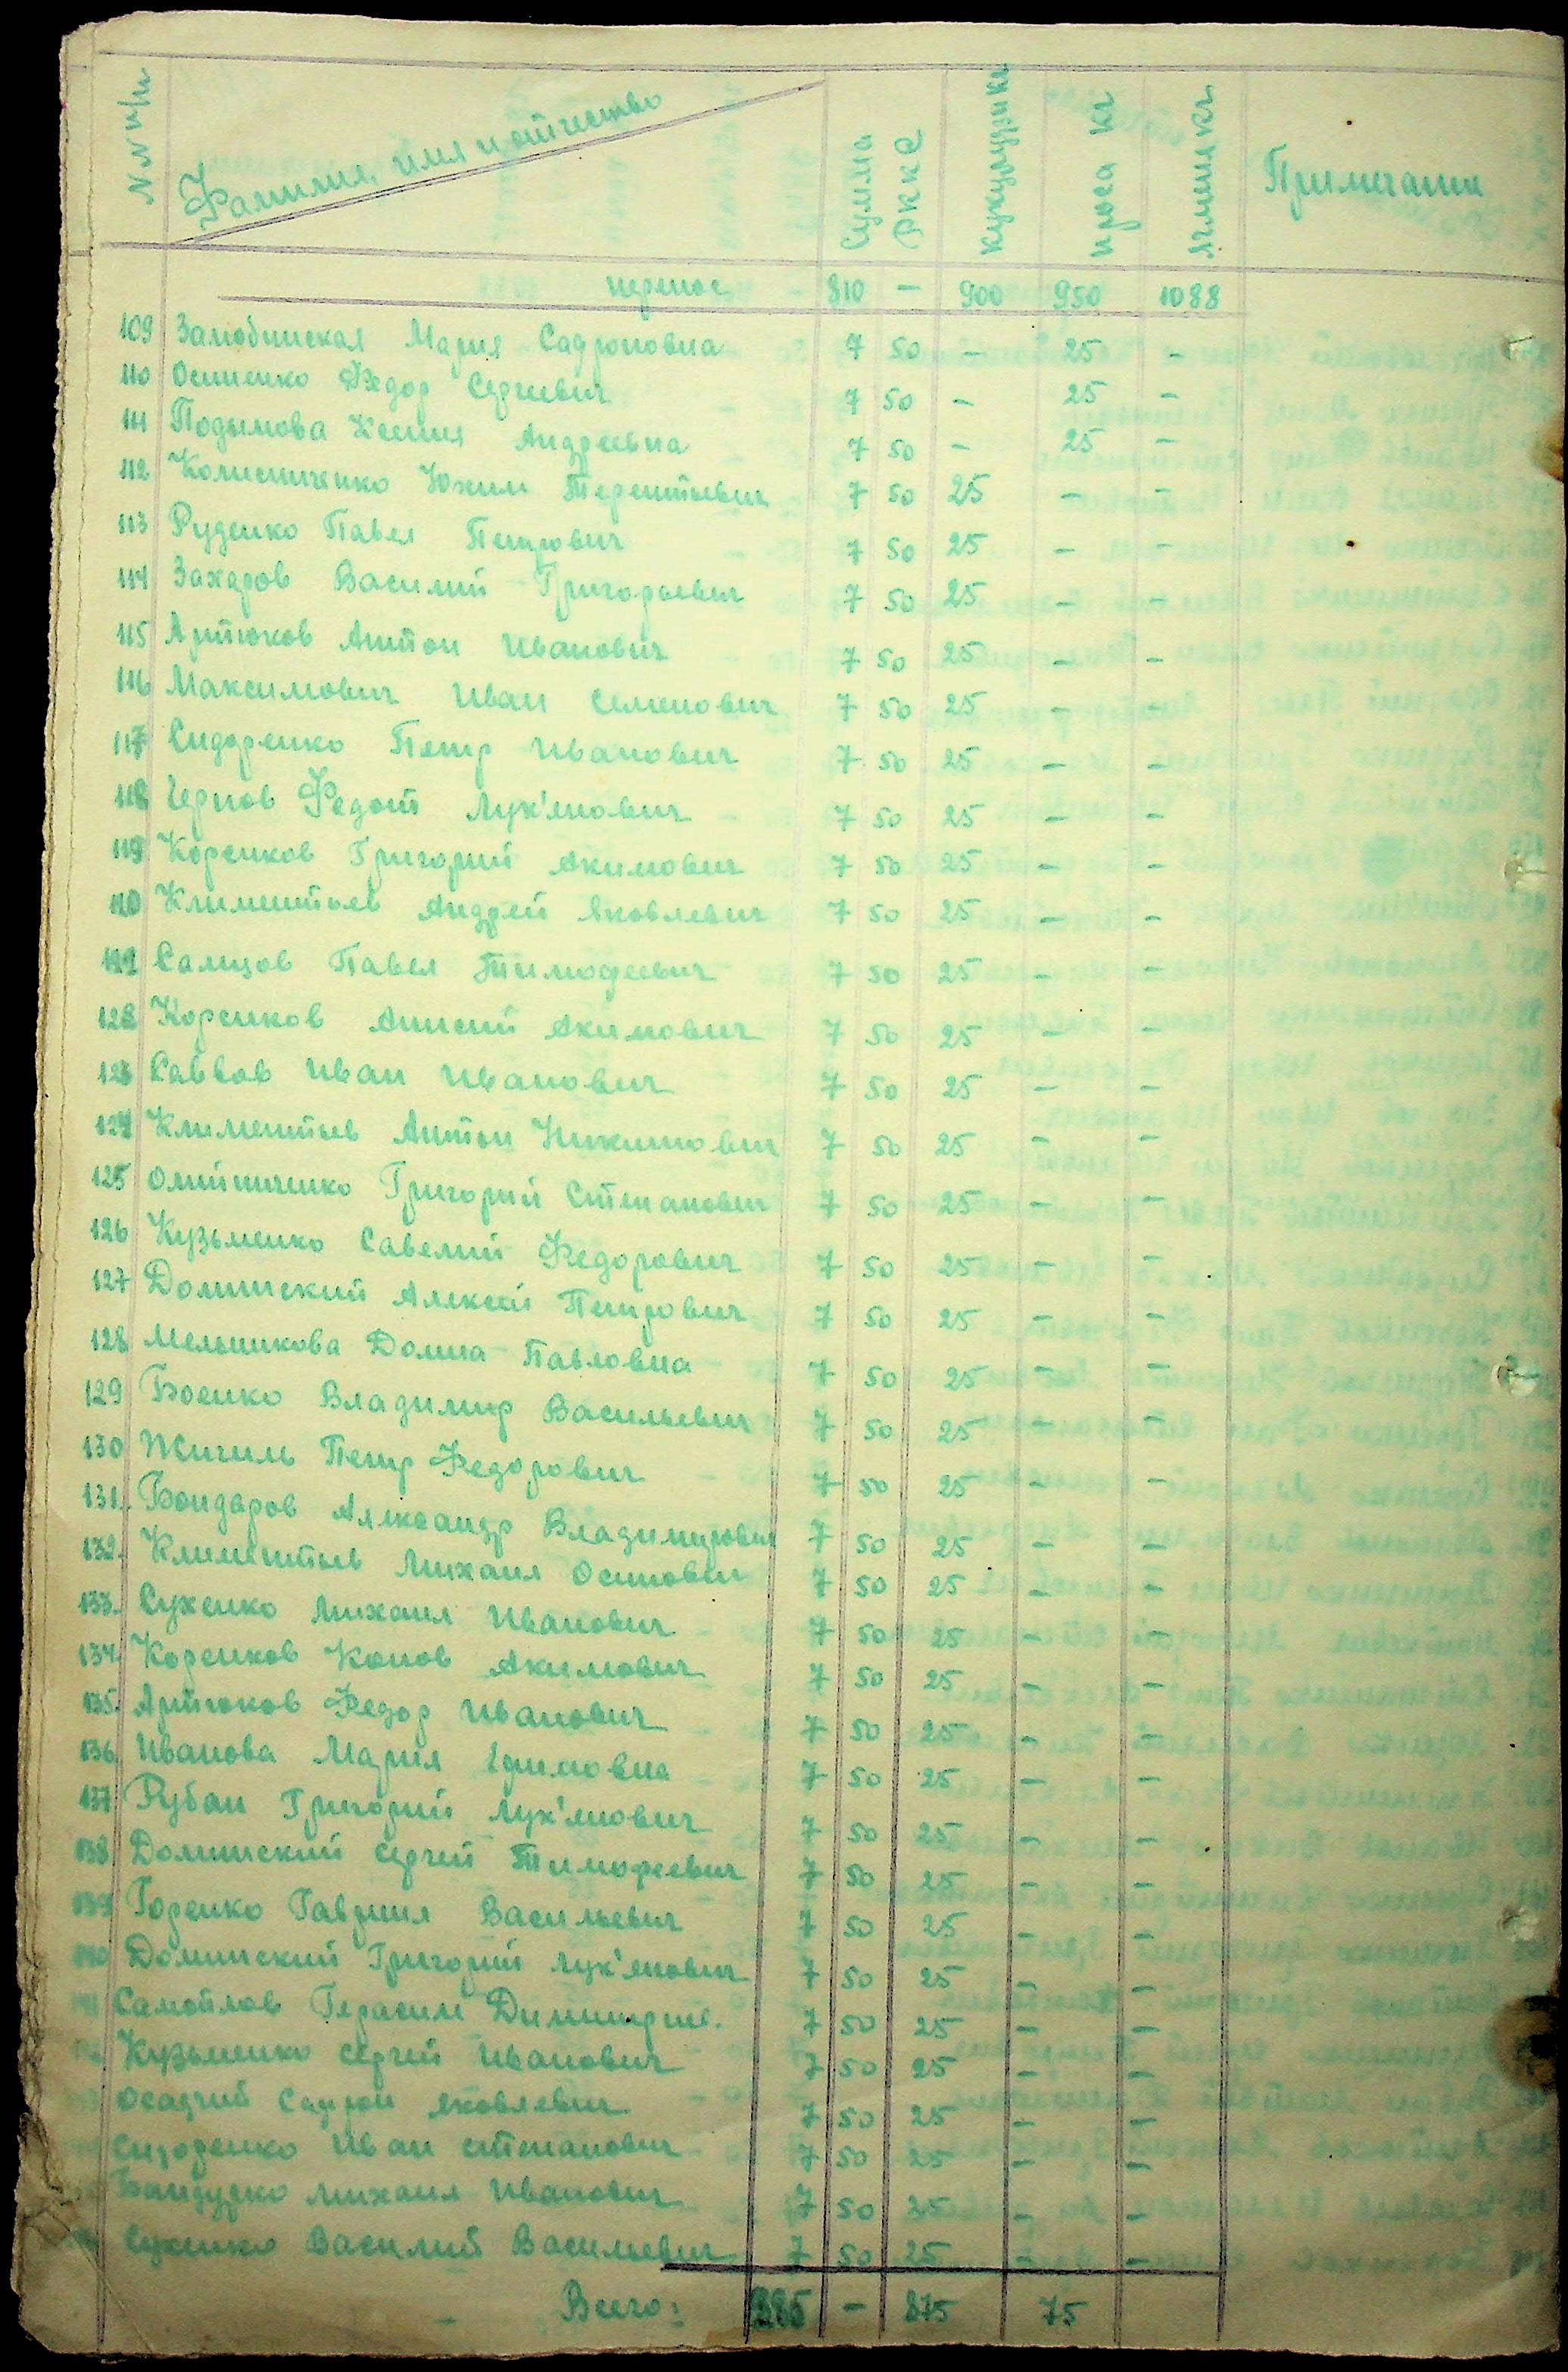 №№ п/п Фамилия, имя и отчество Сумма РККА кукурузы кг проса кг ячменя кг Примечания
перенос 810 – 900 950 1088
109 Мария Сафроновна 7 50 – 25 –
110 Осипенко Федор Сергеевич 7 50 – 25 –
111 Подымова Ксения Андреевна 7 50 – 25 –
112 Колисниченко Юхим Терентьевич 7 50 25 – –
113 Руденко Павел Петрович 7 50 25 – –
114 Захаров Василий Григорьевич 7 50 25 – –
115 Артюхов Антон Иванович 7 50 25 – –
116 Максимович Иван Семенович 7 50 25 – –
117 Сидоренко Петр Иванович 7 50 25 – –
118 Чернов Федот Лук'янович 7 50 25 – –
119 Коренков Григорий Акимович 7 50 25 – –
120 Климентьев Андрей Яковлевич 7 50 25 – –
121 Самцов Павел Тимофеевич 7 50 25 – –
122 Коренков Анисий Акимович 7 50 25 – –
123 Саввов Иван Иванович 7 50 25 – –
124 Климентьев Антон 7 50 25 – –
125 Олийниченко Григорий Степанович 7 50 25 – –
126 Кузьменко Савелий Федорович 7 50 25 – –
127 Долинский Алексей Петрович 7 50 25 – –
128 Мельникова Домна Павловна 7 50 25 – –
129 Боенко Владимир Васильевич 7 50 25 – –
130 Жигиль Петр Федорович 7 50 25 – –
131. Бондаров Александр Владимирович 7 50 25 – –
132. Климентьев Михаил Осипович 7 50 25 – –
133. Сухенко Михаил Иванович 7 50 25 – –
134. Коренков Конов Акимович 7 50 25 – –
135. Артюхов Федор Иванович 7 50 25 – –
136. Иванова Мария Ефимовна 7 50 25 – –
137 Рубан Григорий Лук'янович 7 50 25 – –
138. Долинский Сергей Тимофеевич 7 50 25 – –
139 Горенко Гавриил Васильевич 7 50 25 – –
140 Долинский Григорий Лук'янович 7 50 25 – –
141 Самойлов Герасим Димитрие. 7 50 25 – –
Кузьменко Сергей Иванович 7 50 25 – –
Осадчий Сафрон Яковлевич 7 50 25 – –
Сидоренко Иван Степанович 7 50 25 – –
Михаил Иванович 7 50 25 – –
Сухенко Василий Васильевич 7 50 25 – –
Всего: 285 – 875 75